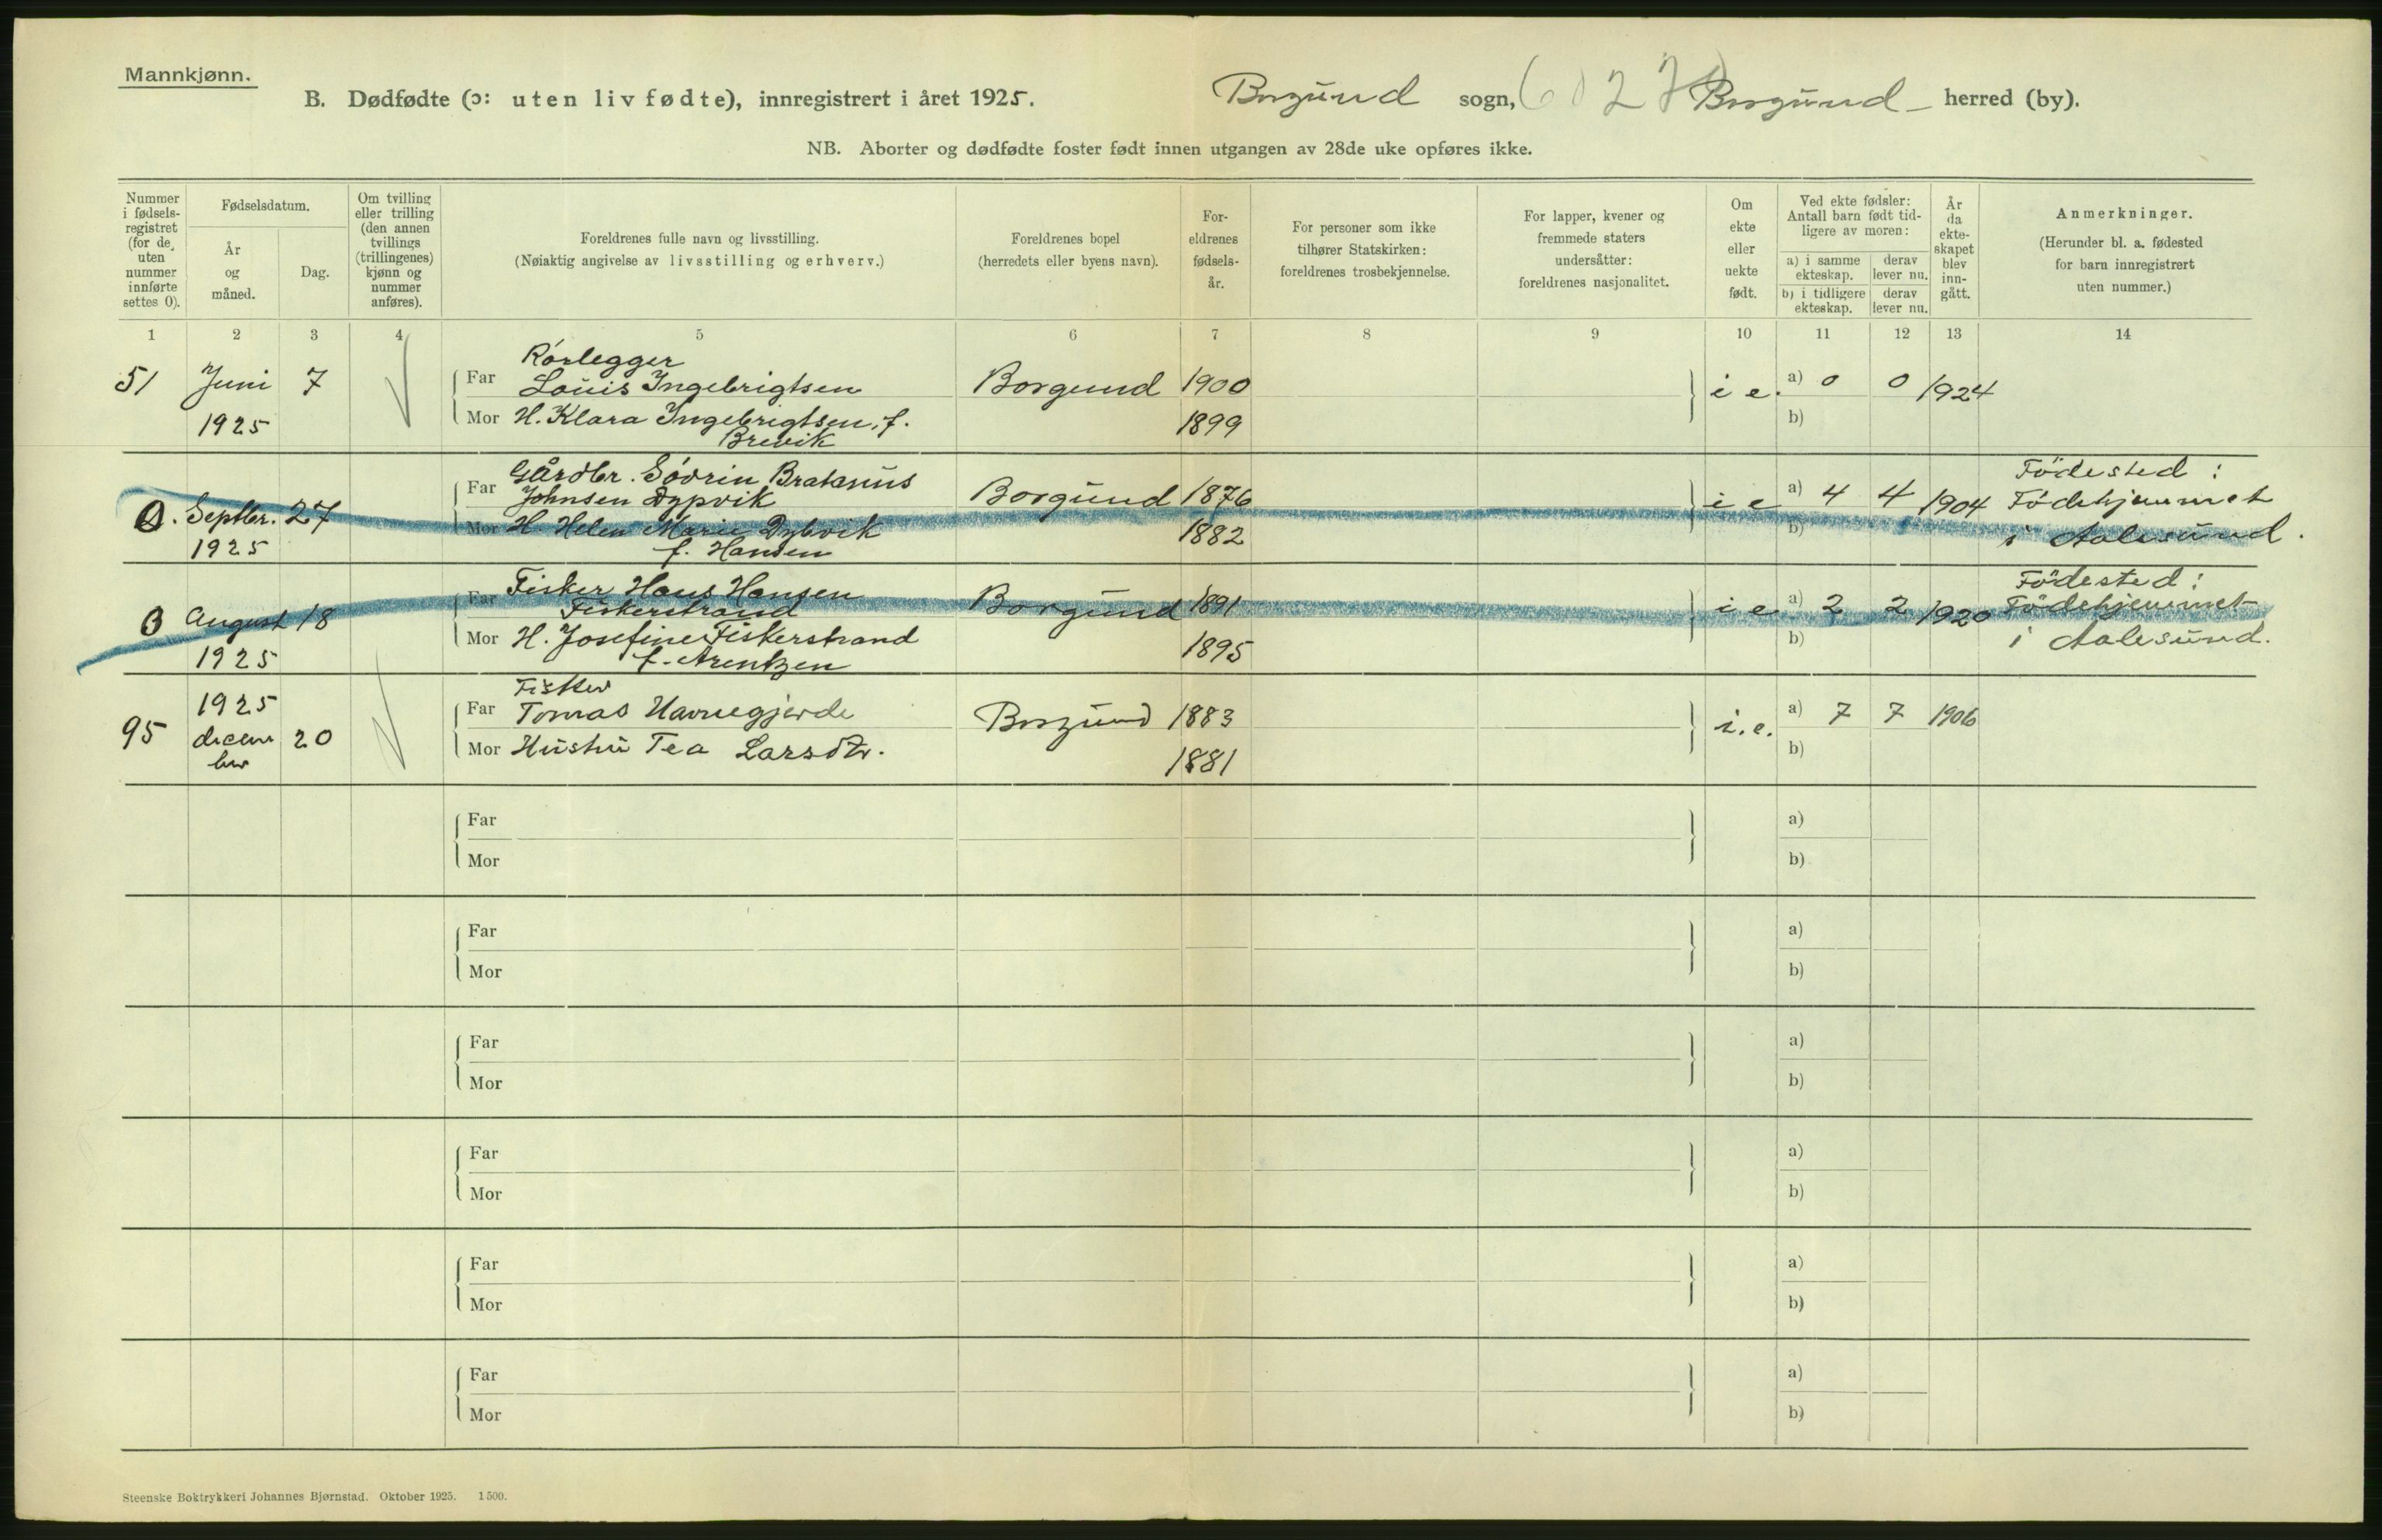 Mannkjønn.
B. Dødfødte (ɔ: uten liv fødte), innregistrert i året 1925.
Borgund sogn, Borgund herred (by).
NB. Aborter og dødfødte foster født innen utgangen av 28de uke opføres ikke.
Nummer i fødsels- registret (for de uten nummer innførte settes 0).
Fødselsdatum.
År og måned.
Dag.
Om tvilling eller trilling (den annen tvillings (trillingenes) kjønn og nummer anføres).
Foreldrenes fulle navn og livsstilling.
(Nøiaktig angivelse av livsstilling og erhverv.)
Foreldrenes bopel
(herredets eller byens navn).
For- eldrenes fødsels- år.
For personer som ikke tilhører Statskirken: foreldrenes trosbekjennelse.
For lapper, kvener og fremmede staters undersåtter: foreldrenes nasjonalitet.
Om ekte eller uekte født.
Ved ekte fødsler: Antall barn født tid- ligere av moren:
a) i samme ekteskap.
derav lever nu.
b) i tidligere ekteskap.
derav lever nu.
År da ekte- skapet blev inn- gått.
Anmerkninger.
(Herunder bl. a. fødested for barn innregistrert uten nummer.)
1 2 3 4 5 6 7 8 9 10 11 12 13 14
Rörlegger
51 Juni 7 Far Louis Ingebrigtsen Borgund 1900 i e. a) 0 0 1924
1925 Mor H. Klara Ingebrigtsen, f. 1899 b)
Brevik
Gårdbr. Sövrin Bratanus Födested:
0. Septbr. 27 Far Johnsen Dypvik Borgund 1876 i e a) 4 4 1904 Födehjemmet
1925 Mor H. Helen Marie Dybvik 1882 b) i Aalesund.
f. Hansen
Fisker Hans Hansen Födested:
0 August 18 Far Fiskerstrand Borgund 1891 i e a) 2 2 1920 Födehjemmet
1925 Mor H. Josefine Fiskerstrand 1895 b) i Aalesund.
f. Arentzen
Fisker
95 1925 decem ber 20 Far Tomas Havnegjerde Borgund 1883 i. e. a) 7 7 1906
Mor Hustru Tea Larsdtr. 1881 b)
Far a)
Mor b)
Far a)
Mor b)
Far a)
Mor b)
Far a)
Mor b)
Far a)
Mor b)
Far a)
Mor b)
Steenske Boktrykkeri Johannes Bjørnstad. Oktober 1925. 1500.